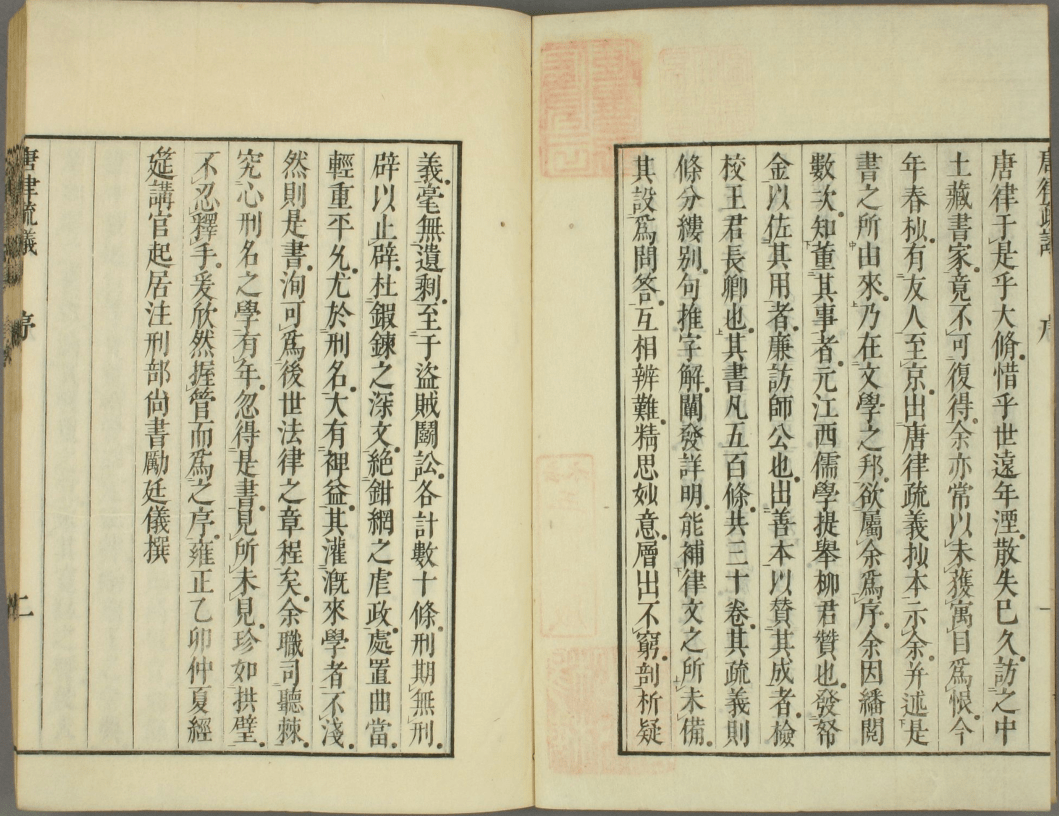 唐律疏議　序　一
唐律于是乎大脩惜乎世遠年湮散失已久訪之中
土藏書家竟不可復得余亦常以未獲寓目爲恨今
年春杪有友人至京出唐律疏義抄本示余并述是
書之所由來乃在文學之邦欲屬余爲序余因繙閲
數次知董其事者元江西儒學提舉柳君贇也發帑
金以佐其用者廉訪師公也出善本以贊其成者檢
校王君長卿也其書凡五百條共三十卷其疏義則
條分縷别句推字解闡發詳明能補律文之所未備
其設爲問答互相辨難精思妙意層出不窮剖析疑
義毫無遺剩至于盜賊鬭訟各計數十條刑期無刑
辟以止辟杜鍜鍊之深文絶鉗網之虐政處置曲當
輕重平允尤於刑名大有裨益其灌漑來學者不淺
然則是書洵可爲後世法律之章程矣余職司聽棘
究心刑名之學有年忽得是書見所未見珍如拱璧
不忍釋手爰欣然握管而爲之序雍正乙卯仲夏經
筵講官起居注刑部尚書勵廷儀撰
唐律疏議　序　二